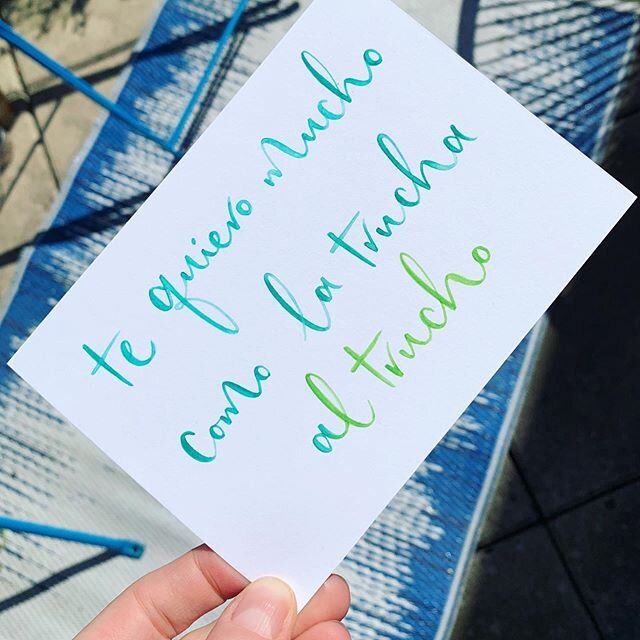 te quiero mucho
como la trucha
al trucho